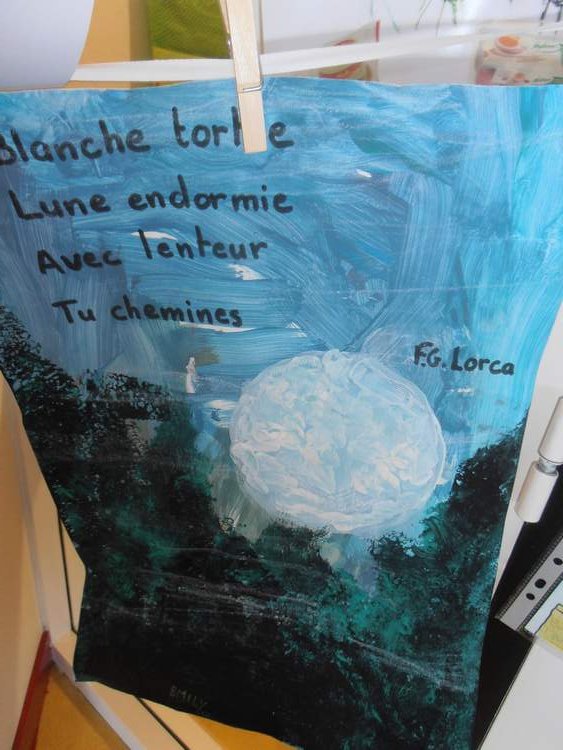 Blanche tortue
Lune endormie
Avec lenteur
Tu chemines
F.G. Lorca